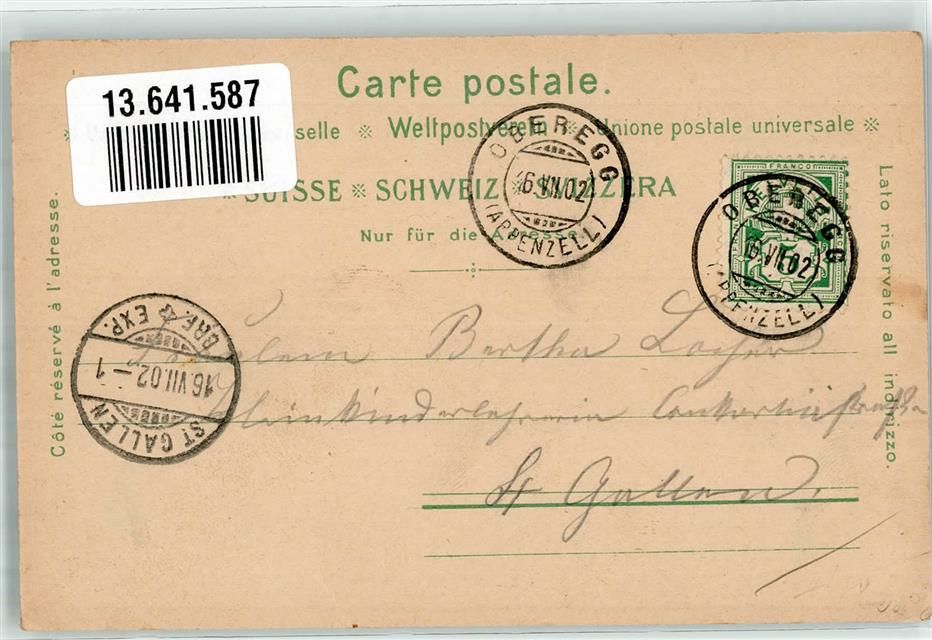 13.641.587
Carte postale.
selle ※ Weltpostverein ※ Unione postale universale ※
SUISSE ※ SCHWEIZ ※ SVIZZERA
Nur für die Adresse.
Côté réservé à l'adresse.
Lato riservato all indirizzo.
OBEREGG
16.VII.02
(APPENZELL)
FRANCO
5
OBEREGG
16.VII.02
(APPENZELL)
BRF. EXP.
16.VII.02-1
ST. GALLEN
Fräulein Bertha Locher
Kleinkinderlehrerin
St Gallen.